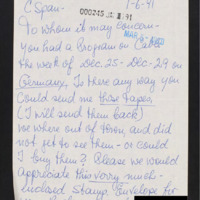 C Span-
1-6-91
000245
To whom it may concern-
you had a Program on Cable
the week of Dec. 25 - Dec - 29 on
Germany, Is there any way you
Could send me these tapes,
(I will send them back)
we where out of town, and did
not get to see them - or could
I buy them? Please we would
Appreciate this very much-
Inclosed Stamp Envelope for